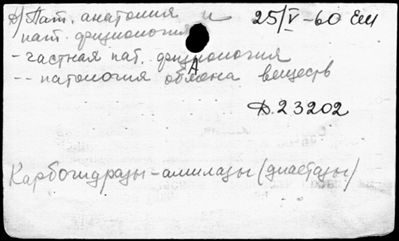 А) Пат. анатомия и 25/V-60 Ем
пат. физиология
- частная пат. физиология
-- патология обмена веществ
Д.23202
Карбогидразы-амилазы (диастазы)